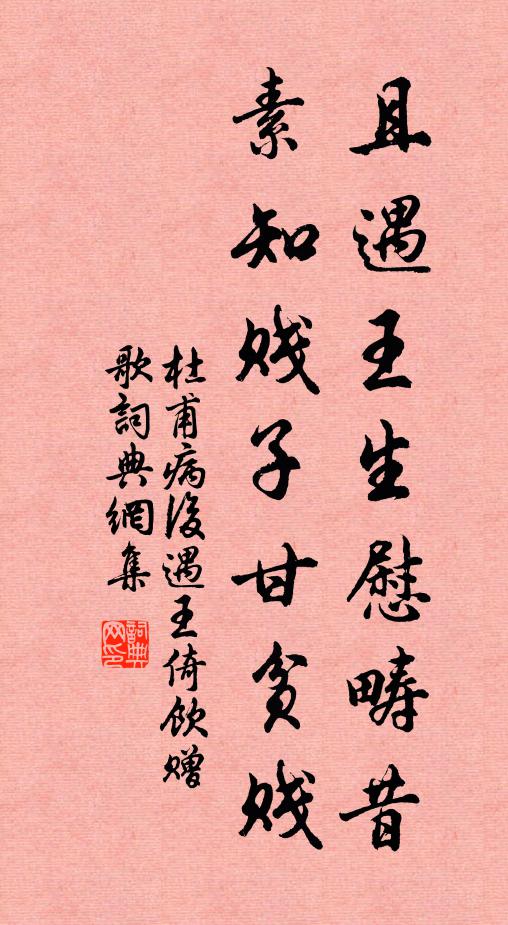 且遇王生慰疇昔
素知贱子甘贫贱
杜甫病後遇王倚飲赠
歌詞典網集
詞典
网印